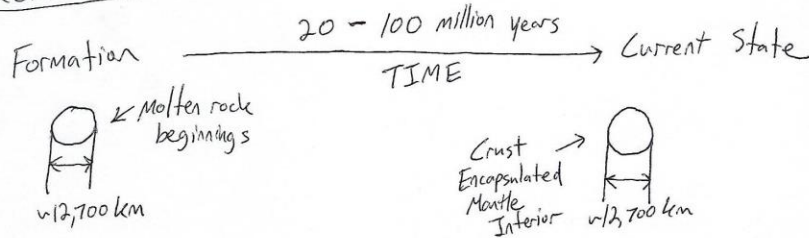 20 - 100 million years
Formation
Current State
TIME
Molten rock
beginnings
~12,700 km
Crust
Encapsulated
Mantle
Interior
~12,700 km